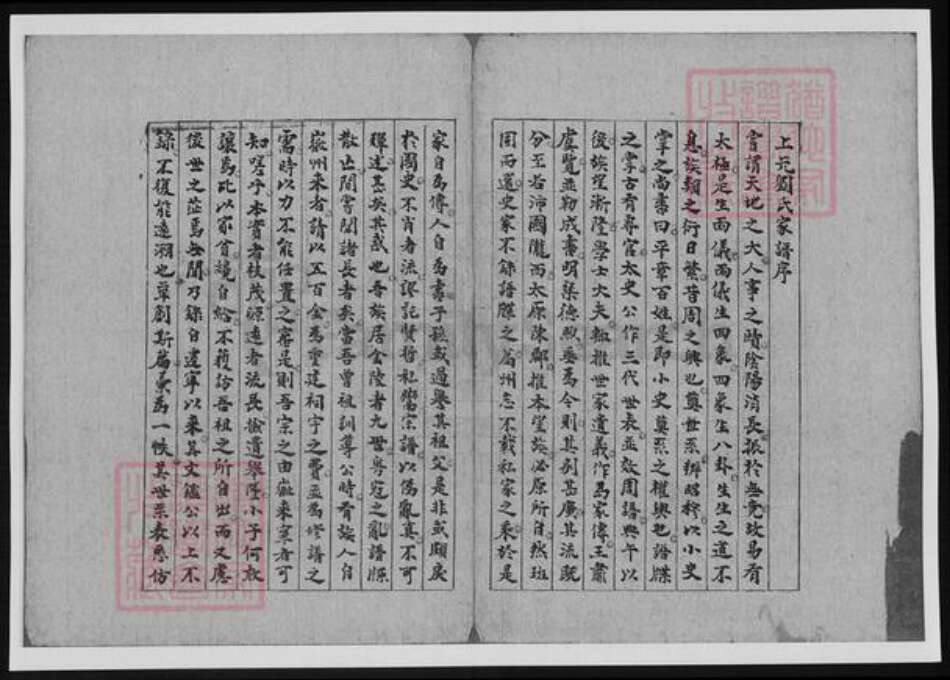 上元劉氏家譜序
嘗謂天地之大人事之賾陰陽消長振於無竟故易有
太極是生兩儀兩儀生四象四象生八卦生生之道不
息族類之衍日繁昔周之興也奠世系辨昭穆以小史
掌之尚書曰平章百姓是即小史奠系之權輿也譜牒
之掌古有專官太史公作三代世表並效周譜典午以
後族望漸隆學士大夫輒推世家遺義作為家傳王肅
虞覽並勒成書明粲德煦垂為令則其別甚廣其流既
分至若沛國隴西太原陳鄭推本望族必原所自然班
固而還史家不錄譜牒之篇州志不載私家之乘於是
家自為傳人自為書子孫或過譽其祖父是非或頗戾
於國史不肖者流謬託賢哲私鬻宗譜以偽亂真不可
殫述甚矣其惑也吾族居金陵者九世粵寇之亂譜牒
散亡間嘗聞諸長者矣當吾曾祖訓尊公時有族人自
歙州來者請以五百金為重建祠宇之費並為修譜之
需時以力不能任置之審是則吾宗之由歙來寔者可
知嗟乎本實者枝茂源遠者流長撿遺舉墜小子何敢
讓焉比以家貧境自給不獲訪吾祖之所自出而又慮
後世之茫焉無聞乃錄自遷寧以來其文鑑公以上不
錄不復能遠溯也草創斯篇彙為一帙其世系表悉仿